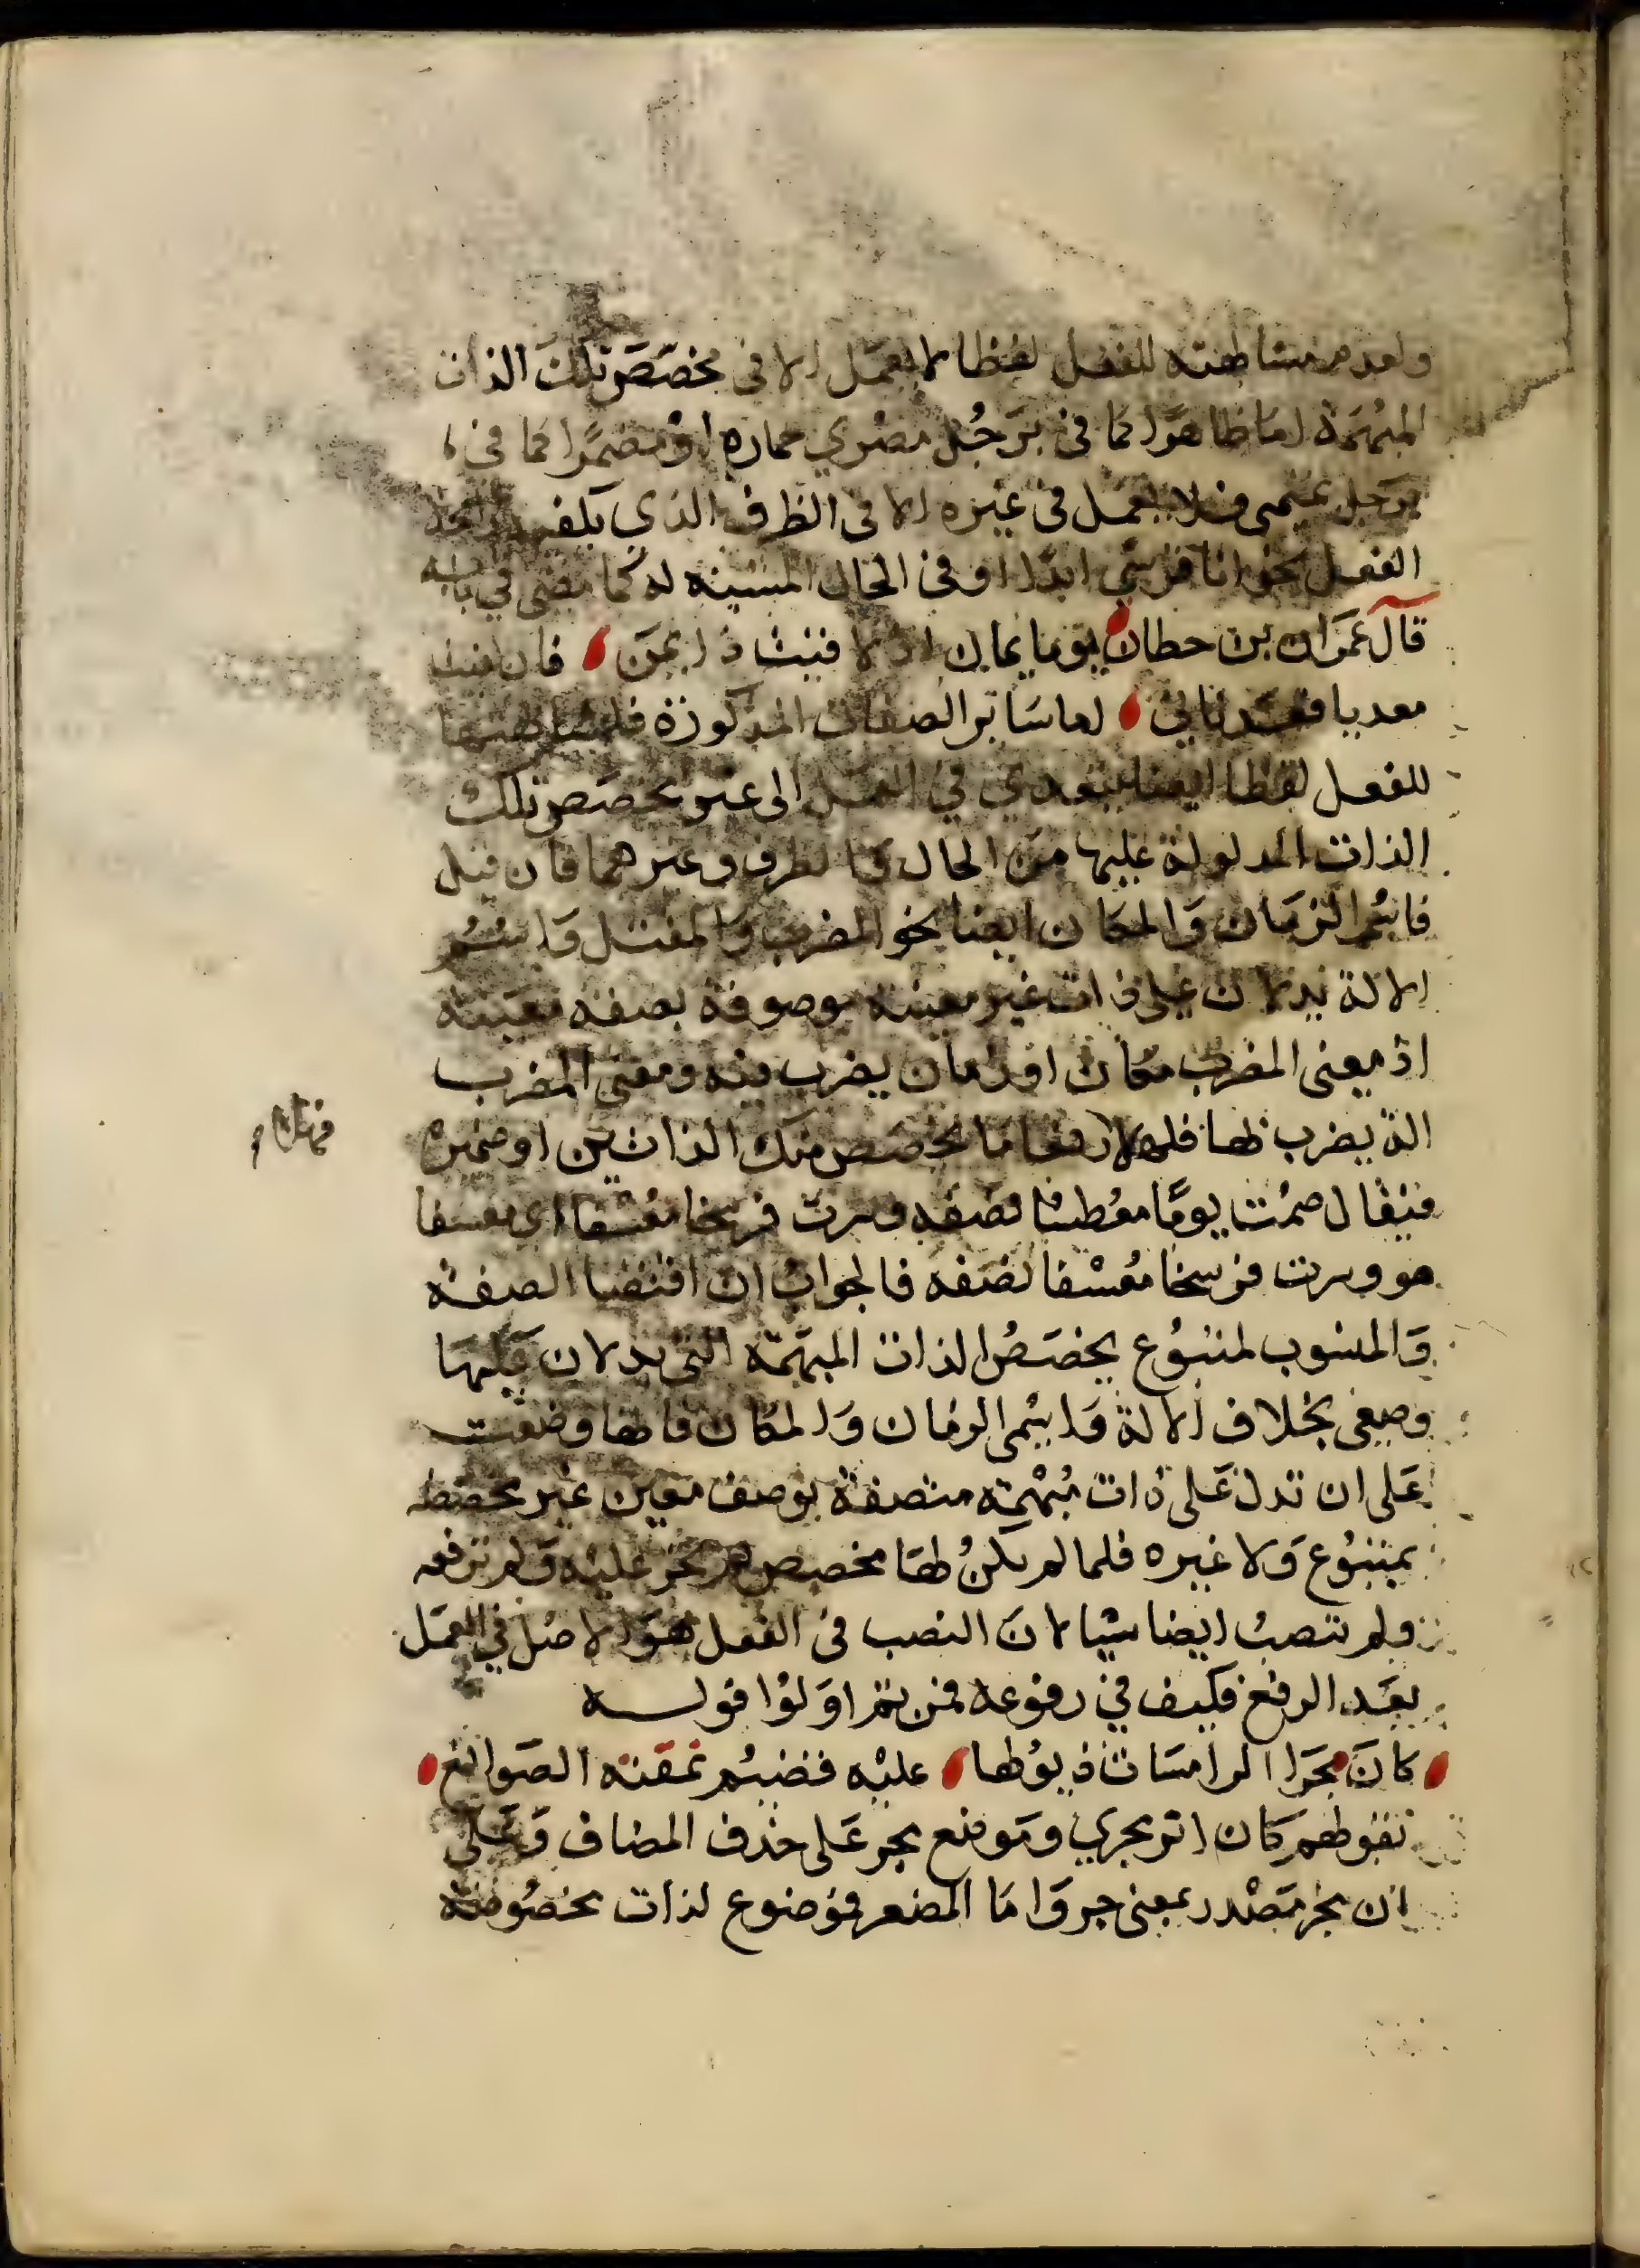 ولعدم مشابهته للفعل لفظا لا يعمل الا في مخصص تلك الذات
المبهمة اما ظاهرا كما في برجل مصري حماره او مضمرا كما في
برجل تميمي فلا يعمل في غيره الا في الظرف الذي يكفيه رائحة
الفعل نحو انا قرشي ابدا او في الحال المشبه له كما مضى في بابه
قال عمران بن حطان يوما يمان اذا لاقيت ذا يمن فان لقيت
معديا فعدناني اما سائر الصفات المذكورة فلمشابهتها
للفعل لفظا ايضا يتعدي في العمل الى غير مخصص تلك
الذات المدلولة عليها من الحال والظرف وغيرهما فان قيل
فاسم الزمان والمكان ايضا نحو المضرب والمقتل واسم
الالة يدلان على ذات غير معينة موصوفة بصفة معينة
اذ معنى المضرب مكان او زمان يضرب فيه ومعنى المضرب
الة يضرب بها فلم لا رفعا ما يخصص تينك الذاتين او ضميره
فهلا
فيقال صمت يوما معطشا نصفه وسرت فرسخا معسفا اي معسفا
هو وسرت فرسخا معسفا نصفه فالجواب ان اقتضا الصفة
والمنسوب لمتبوع يخصص الذات المبهمة التي يدلان عليها
وضعي بخلاف الالة واسمي الزمان والمكان فانها وضعت
على ان تدل على ذات مبهمة متصفة بوصف معين غير مخصصه
بمتبوع ولا غيره فلما لم يكن لها مخصص لم تجر عليه ولم ترفعه
ولم تنصب ايضا شيا لان النصب في الفعل هو الاصل في العمل
بعد الرفع فكيف في رفوعه فمن ثم اولوا قوله
كان مجر الرامسات ذيولها عليه قضيم نمقته الصوانع
بقولهم كان اثر مجري وموضع مجر على حذف المضاف وعلى
ان مجر مصدر بمعنى جر واما المصغر فموضوع لذات مخصوصة